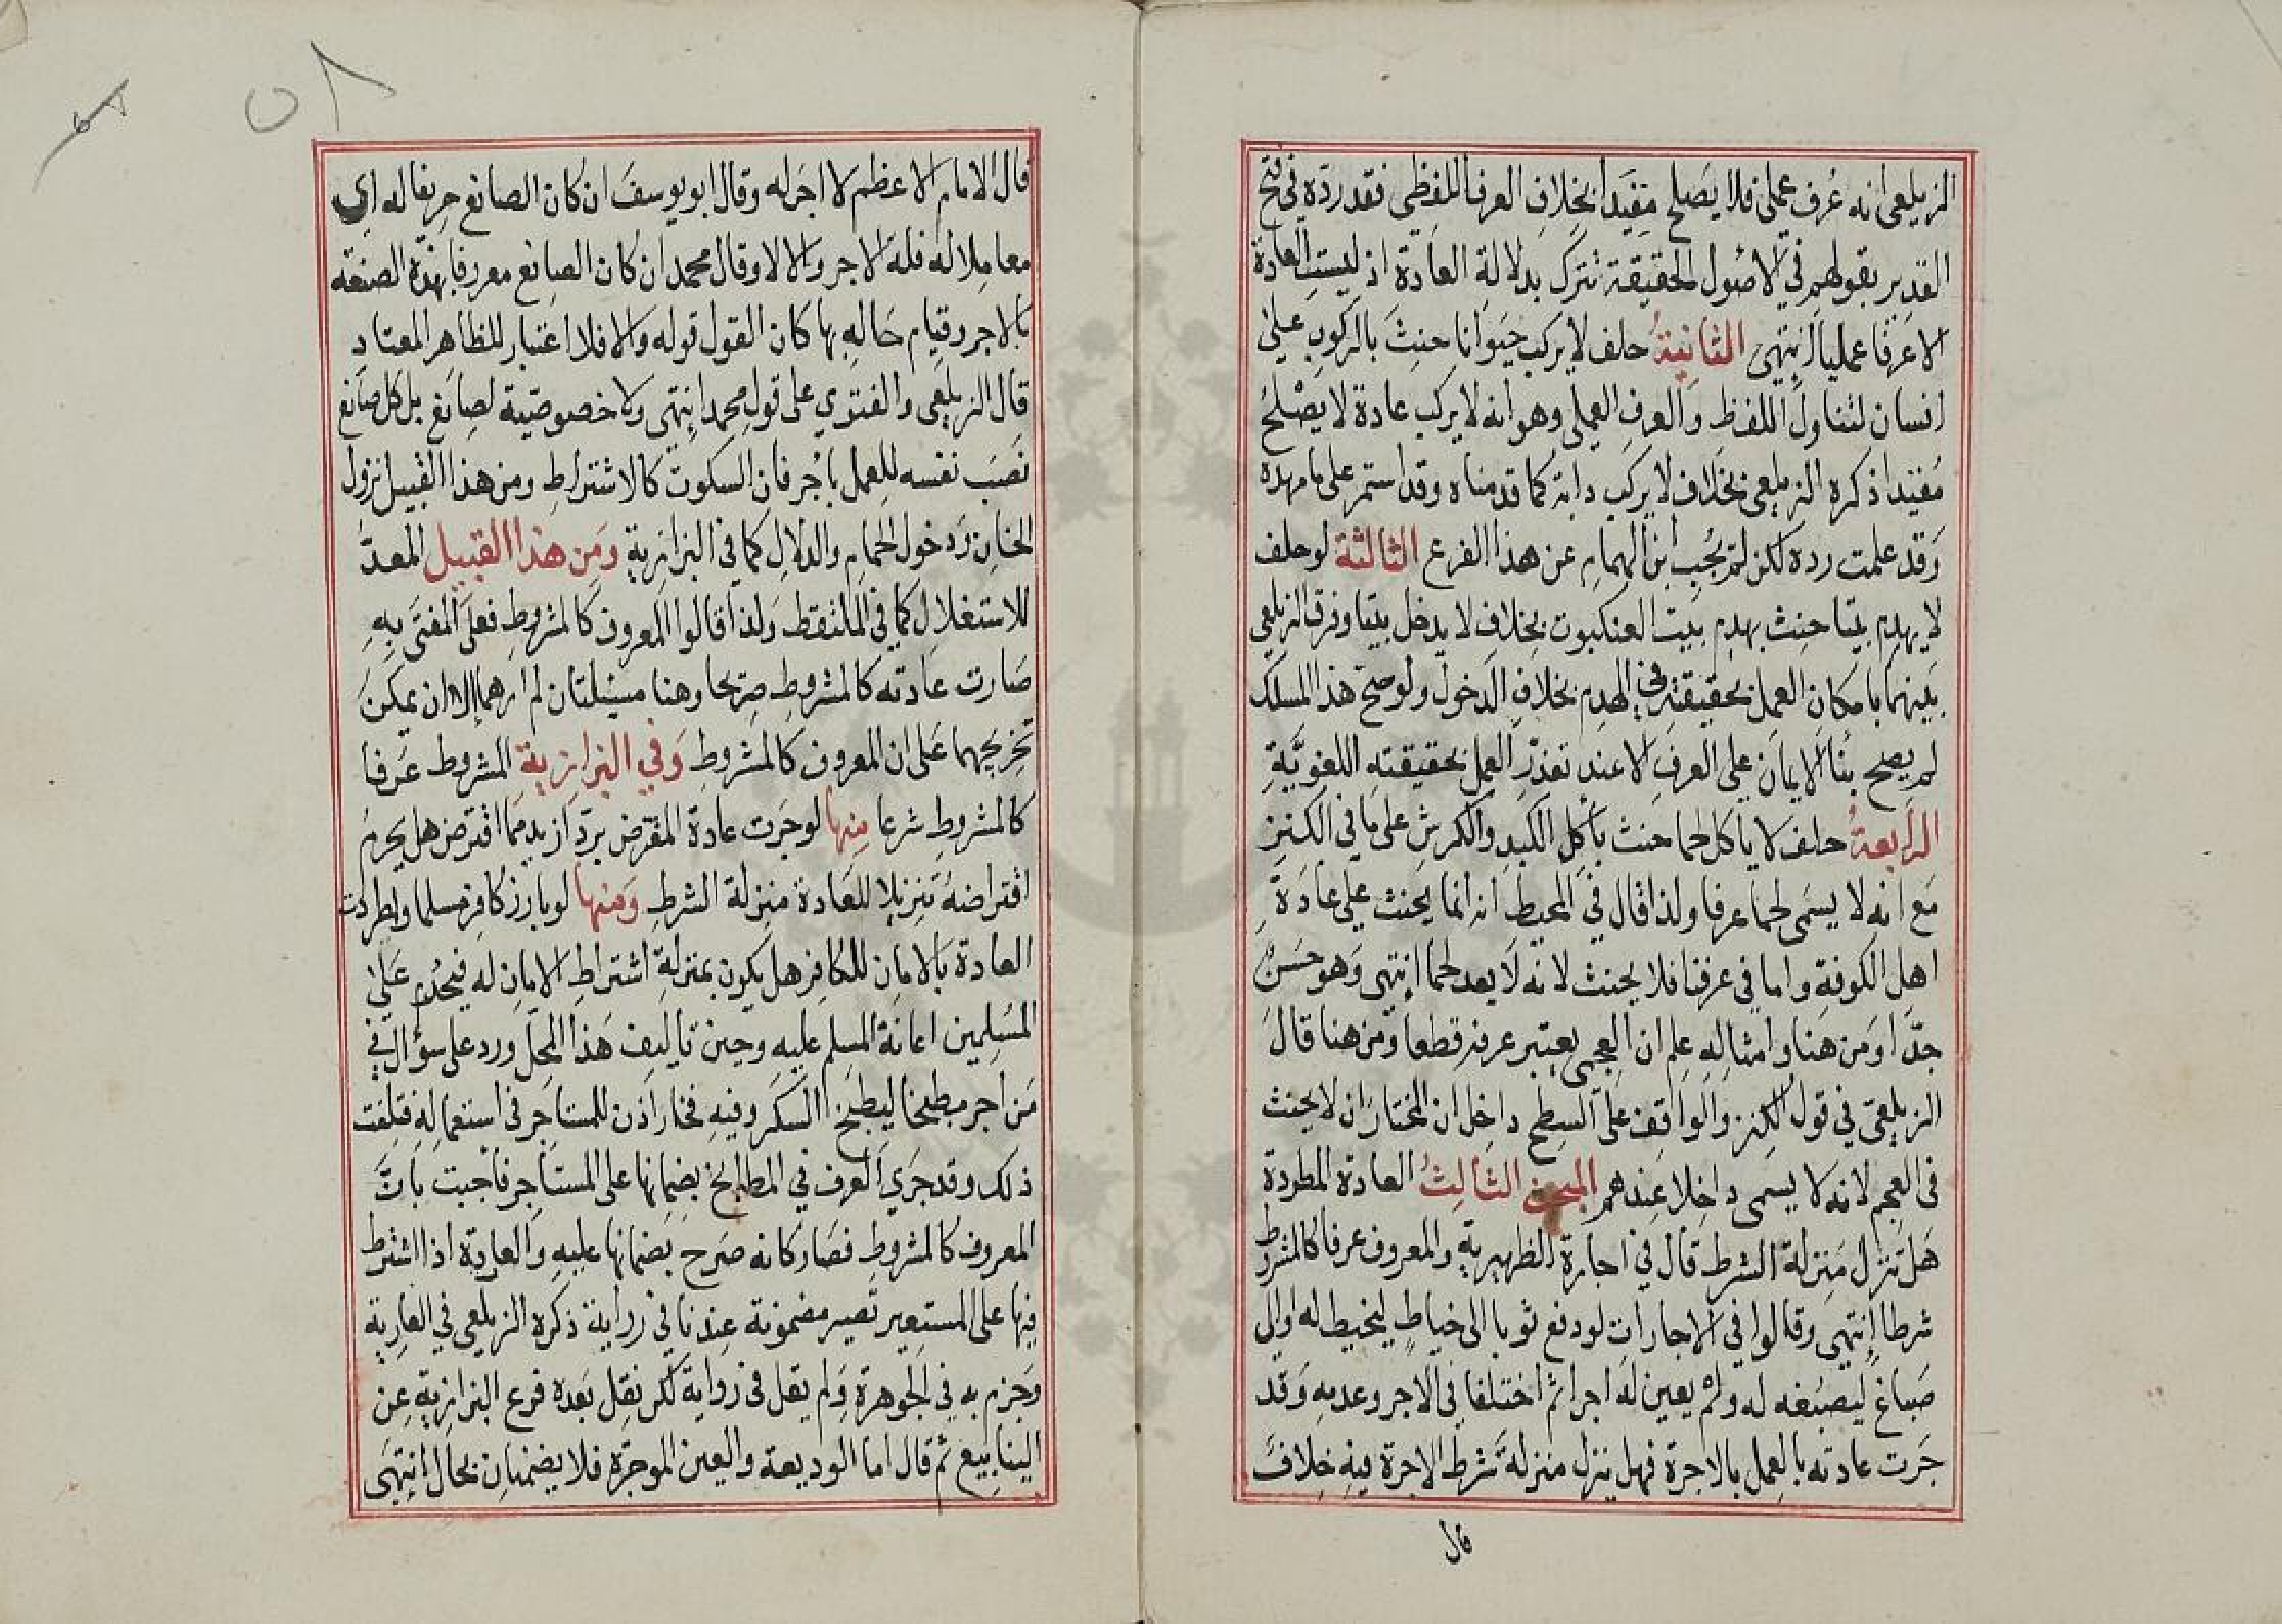 الزيلعي انه عُرف عملي فلا يَصلح مقيّدا بخلاف العرف اللفظي فقد ردّه في فتح
القدير بقولهم في الاصول الحقيقة تترك بدلالة العادة اذ ليست العادة
الا عرفا عمليا انتهى الثانية حلف لا يركب حيوانا حنث بالركوب على
انسان لتناول اللفظ والعرف العملي وهو انه لا يركب عادة لا يصلح
مُقيّدا ذكره الزيلعي بخلاف لا يركب دابة كما قدمناه وقد استمر على ما مهده
وَقد علمت رده لكن لم يُجب ابن الهمام عن هذا الفرع الثالثة لو حلف
لا يهدم بيتا حنث بهدم بيت العنكبوت بخلاف لا يدخل بيتا وفرق الزيلعي
بينهما بامكان العمل بحقيقته في الهدم بخلاف الدخول ولو صح هذا المسلك
لم يصح بنا الايمان على العرف الا عند تعذر العمل بحقيقته اللغويّةِ
الرابعةُ حلف لا ياكل لحما حنث بأكل الكبد والكرش على ما في الكنز
مَع انه لا يسمى لحما عرفا ولذا قال في المحيط انه انما يحنث على عادَةِ
اهل الكوفة واما في عرفنا فلا يحنث لانه لا يعد لحما انتهى وَهو حَسَنٌ
جدّا ومن هنا وامثاله علم ان العجمى يعتبر عرفه قطعا ومن هنا قالَ
الزيلعي في قول الكنز والواقف على السطح داخل ان المختار ان لا يحنث
في العجم لانه لا يسمى داخلا عندهم المبحث الثالثُ العادة المطردة
هَل تنزل منزلة الشرط قال في اجارة الظهيرية والمعروف عرفا كالمشروط
شرطا انتهى وقالوا في الاجارات لو دفع ثوبا الى خياط ليخيطه له او الى
صَباغ ليصبغه له ولم يعين له اجرا ثم اختلفا في الاجر وعدمه وَقد
جَرت عادته بالعمل بالاجرة فهل ينزل منزلة شرط الاجرة فيه خلافٌ
قال
٥٨
قال الامام الاعظم لا اجرَ له وقال ابو يوسفَ ان كان الصانع حريفا له اي
معاملا له فله الاجر والا لا وقال محمد ان كان الصانع معروفا بهذه الصنعة
بالاجر وقيام حَاله بها كان القول قوله والا فلا اعتبار للظاهر المعتاد
قال الزيلعي والفتوي على قول محمد انتهى ولا خصوصية لصانع بل كل صانع
نصَبَ نفسه للعمل باجر فان السكوت كالاشتراط ومن هذا القبيل نزول
الخان وَدخول الحمام والدلال كما في البزازية ومَن هذا القبيل المعدّ
للاستغلال كما في الملتقط ولذا قالوا المعروف كالمشروط فعلى المفتى بهِ
صَارت عادته كالمشروط صريحا وهنا مسئلتان لم ارهما الا ان يمكنَ
تخريجهما عَلى ان المعروف كالمشروط وَفي البزازية المشروط عَرفا
كالمشروط شرعا منها لو جَرت عادة المقترض بردّ ازيد مما اقترض هل يحرم
اقتراضهُ تنزيلا للعَادة منزلة الشرط وَمنها لو بارز كافر مسلما واطردت
العادة بالامان للكافر هل يكون بمنزلة اشتراط الامان له فيحرم عَلى
المسلمين اعانة المسلم عليه وحين تاليف هَذا المحل ورد على سؤال في
مَن اجر مطبخا ليطبخ السكر وفيه فخار اذن للمستاجر في استعماله فتلفت
ذلك وقد جَري العرف في المطابخ بضمانها على المستأجر فأجبت بانّ
المعروف كالمشروط فصَار كانه صرح بَضمانها عليه والعارية اذا اشترط
فيها على المستعير تصير مضمونة عندنا في رواية ذكره الزيلعي في العارية
وَجزم به في الجوهرة وَلم يقل في رواية لكن نقل بَعده فرع البزازية عن
الينابيع ثم قال اما الوديعة والعين الموجرة فلا يضمنان بحال انتهى